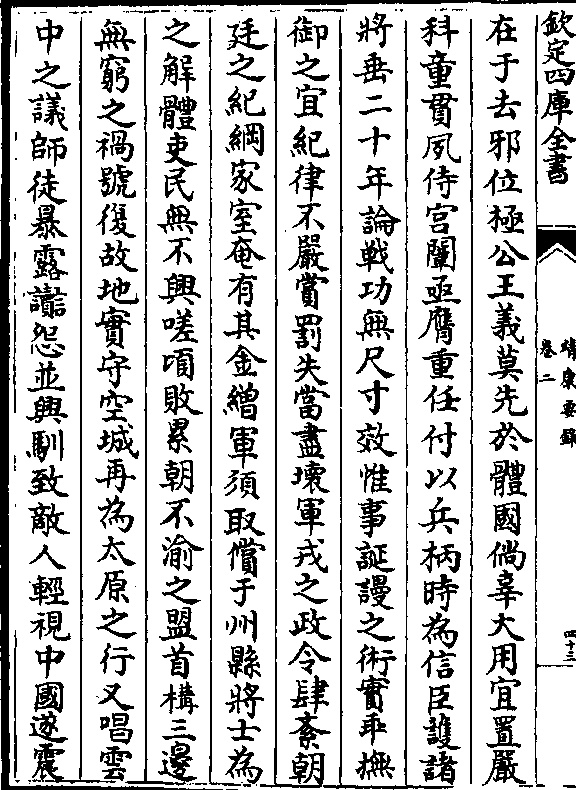 欽定四庫全書
靖康要錄
卷二
四十三
在于去邪位極公王義莫先於體國倘辜大用宜置嚴
科童貫夙侍宮闈亟膺重任付以兵柄時為信臣護諸
將垂二十年論戰功無尺寸效惟事誕謾之術實乖撫
御之宜紀律不嚴賞罰失當盡壞軍戎之政令肆紊朝
廷之紀綱家室奄有其金繒軍須取償于州縣將士為
之解體吏民無不興嗟頃敗累朝不渝之盟首構三邊
無窮之禍號復故地實守空城再為太原之行又唱雲
中之議師徒暴露讟怨並興馴致敵人輕視中國遂震